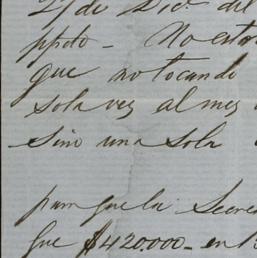 27 de Dic.e del
ppdo - No esta
que no tocando
sola vez al mes
sino una sola
para que la Secre
fue $420.000 - en